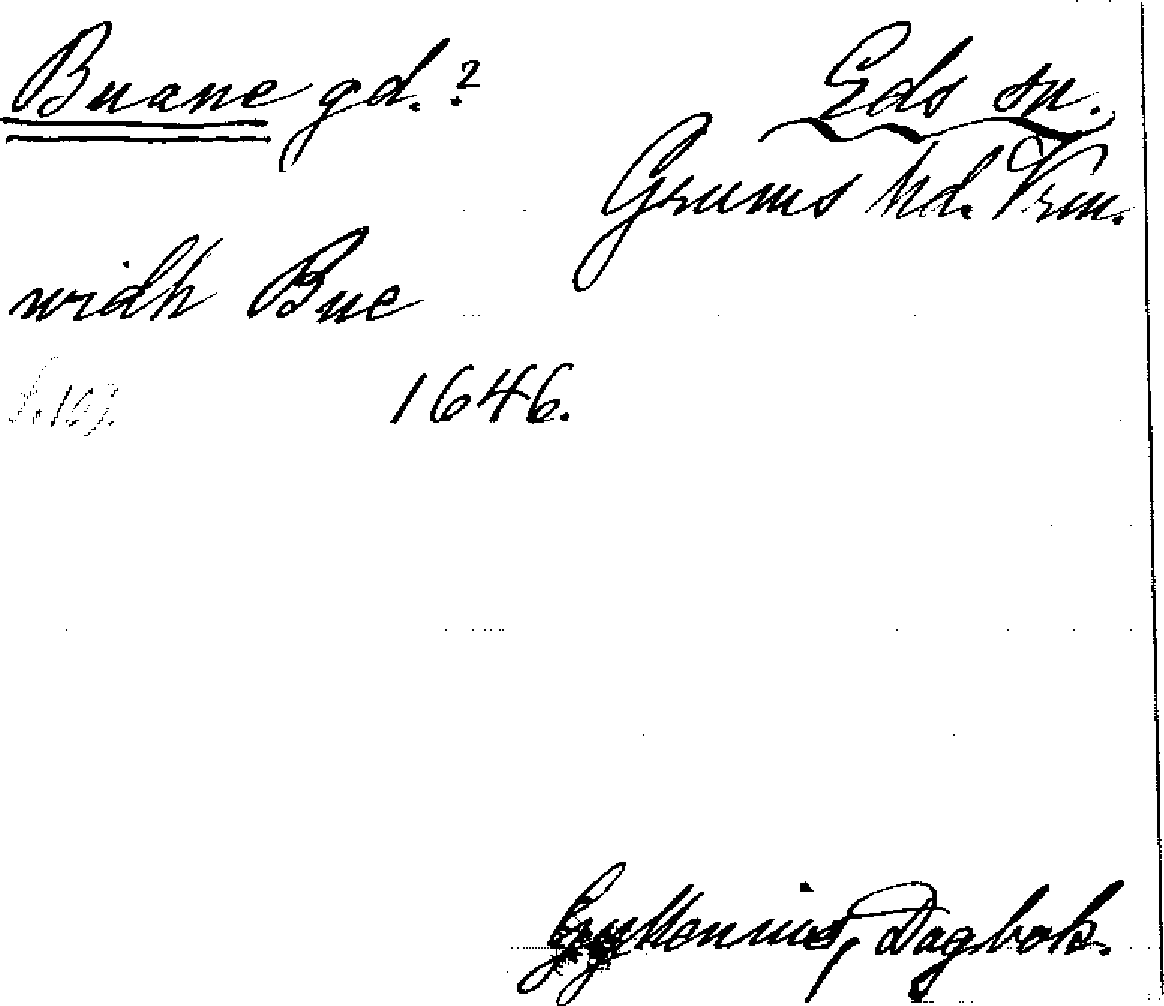 Buane gd.? Eds sn.
Grums hd. Vrm.
widh Bue
s. 163. 1646.
Gyllenius, Dagbok.